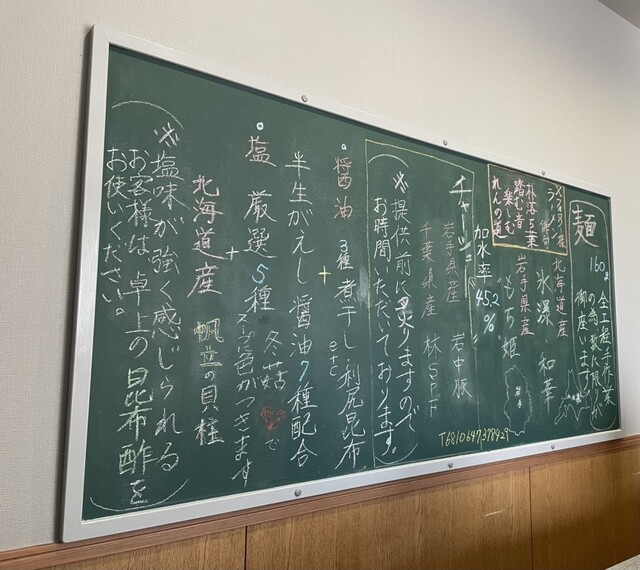 麺
160g 全工程手作業
の為 数に限りが
御座います。
北海道産
氷瀑・和華
岩手県産
"もち姫"
俳句
落葉
踏む音
楽しむ
れんの道
加水率 45.2%
チャーシュー
岩手県産 岩中豚
千葉県産 林SPF
(※提供前に炙りますので
お時間いただいております。)
T6810647378429
醤油 3種煮干し・利尻昆布
+ etc
半生がえし 醤油7種配合
塩 厳選5種 冬菇で
スープ色がつきます
+
北海道産 帆立の貝柱
(※塩味が強く感じられる
お客様は 卓上の昆布酢を
お使いください。)